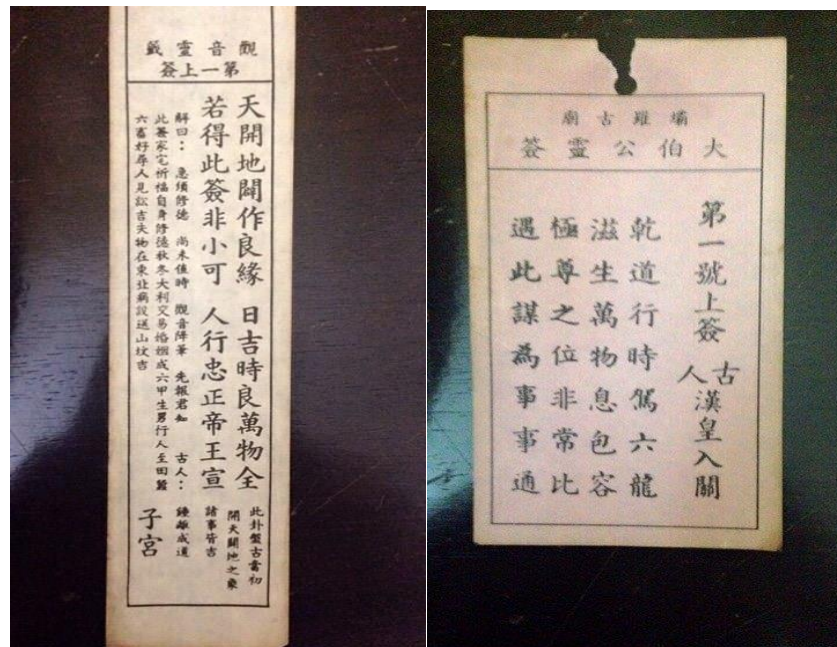 觀音靈籤
第一上簽
天開地闢作良緣 日吉時良萬物全
若得此簽非小可 人行忠正帝王宣
解曰：急須修德 尚未值時 觀音降筆 先報君知 古人：
此簽家宅祈福自身修德秋冬大利交易婚姻成六甲生男行人至田蠶
六畜好尋人見訟吉失物在東北病設送山坟吉
此卦盤古當初
開天闢地之象
諸事皆吉
鍾離成道
子宮
壩羅古廟
大伯公靈簽
第一號上簽 古人漢皇入關
乾道行時駕六龍
滋生萬物息包容
極尊之位非常比
遇此謀為事事通